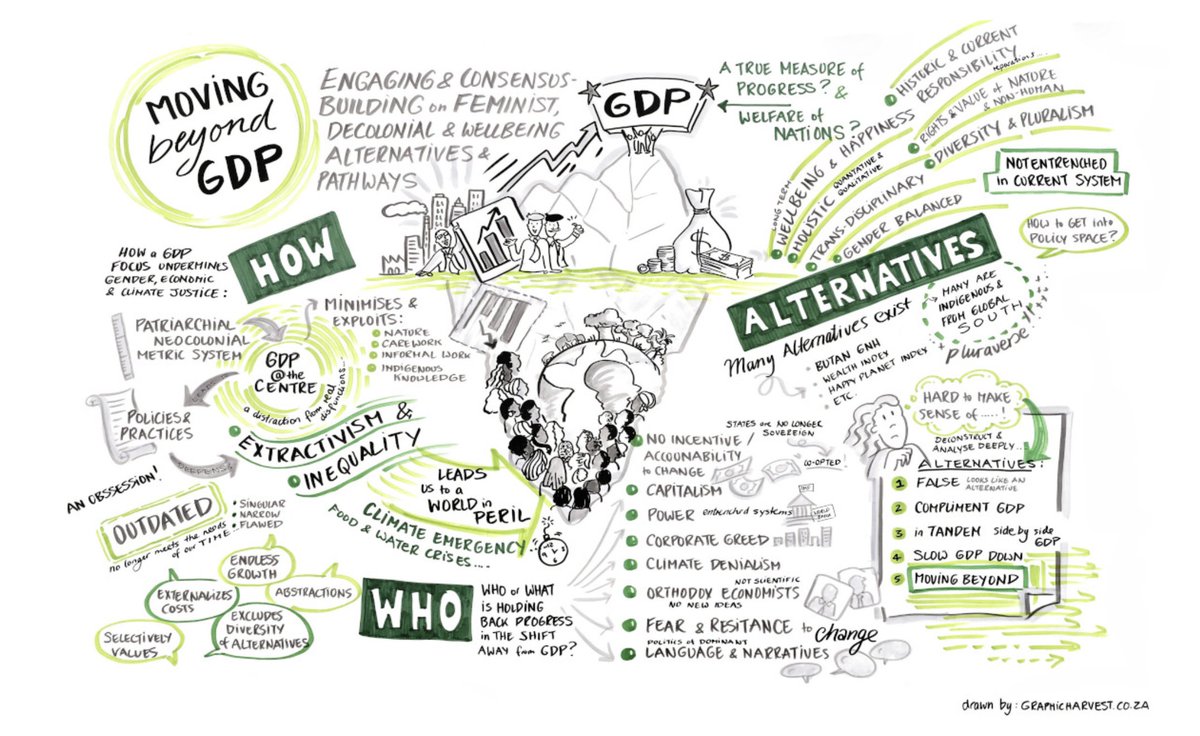 MOVING
beyond
GDP
ENGAGING & CONSENSUS-
BUILDING on FEMINIST,
DECOLONIAL & WELLBEING
ALTERNATIVES &
PATHWAYS
GDP
A TRUE MEASURE of
PROGRESS? &
WELFARE of
NATIONS?
HISTORIC & CURRENT
RESPONSIBILITY
reparations....
RIGHTS & VALUE of NATURE
& NON-HUMAN
DIVERSITY & PLURALISM
LONG TERM
WELLBEING & HAPPINESS
HOLISTIC QUANTATIVE &
QUALITATIVE
TRANS-DISCIPLINARY
GENDER BALANCED
NOT ENTRENCHED
in CURRENT SYSTEM
HOW to GET into
POLICY SPACE?
HOW
HOW a GDP
FOCUS UNDERMINES
GENDER, ECONOMIC
& CLIMATE JUSTICE:
PATRIARCHIAL
NEOCOLONIAL
METRIC SYSTEM
GDP
@ the
CENTRE
a distraction from real
disfunctions...
MINIMISES &
EXPLOITS:
NATURE
CAREWORK
INFORMAL WORK
INDIGENOUS
KNOWLEDGE
POLICIES &
PRACTICES
DEEPENS
EXTRACTIVISM &
INEQUALITY
LEADS
US to a
WORLD in
PERIL
CLIMATE EMERGENCY
FOOD & WATER CRISES....
AN OBSSESSION!
OUTDATED
no longer meets the needs
of our TIME...
SINGULAR
NARROW
FLAWED
ENDLESS
GROWTH
EXTERNALIZES
COSTS
ABSTRACTIONS
EXCLUDES
DIVERSITY
of ALTERNATIVES
SELECTIVELY
VALUES
WHO
WHO or WHAT
is HOLDING
BACK PROGRESS
in THE SHIFT
AWAY from GDP?
NO INCENTIVE /
ACCOUNABILITY
to CHANGE
STATES are NO LONGER
SOVEREIGN
CO-OPTED
CAPITALISM
POWER entrenched systems
IMF
WORLD
BANK
CORPORATE GREED
CLIMATE DENIALISM
NOT SCIENTIFIC
ORTHODOX ECONOMISTS
NO NEW IDEAS
FEAR & RESITANCE to change
POLITICS of DOMINANT
LANGUAGE & NARRATIVES
ALTERNATIVES
Many Alternatives exist
BUTAN GNH
WEALTH INDEX
HAPPY PLANET INDEX
ETC.
MANY ARE
INDIGENOUS &
FROM GLOBAL
SOUTH
pluraverse
HARD to MAKE
SENSE of.....!
DECONSTRUCT &
ANALYSE DEEPLY...
ALTERNATIVES:
1 FALSE LOOKS LIKE AN
ALTERNATIVE
2 COMPLIMENT GDP
3 in TANDEM side by side
GDP
4 SLOW GDP DOWN
5 MOVING BEYOND
drawn by: GRAPHICHARVEST.CO.ZA